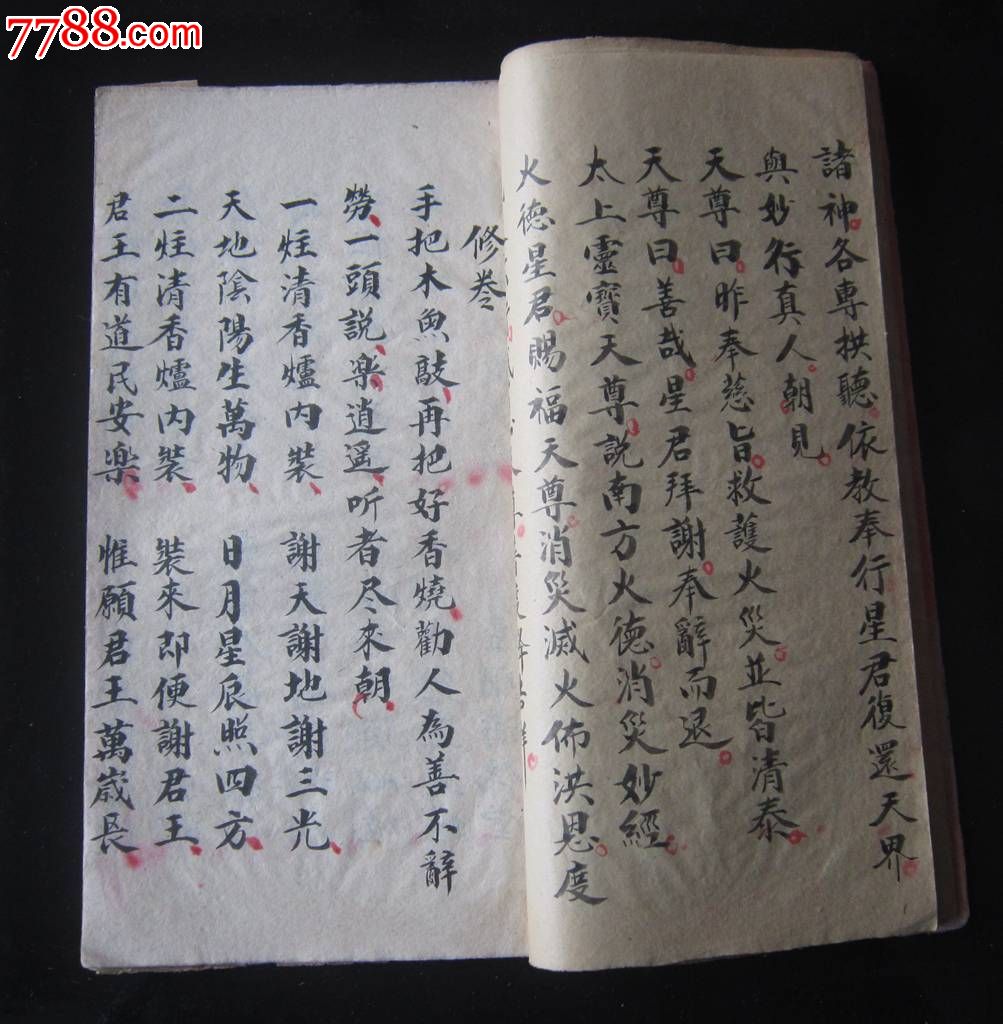 7788.com
諸神各専拱聽依教奉行星君復還天界
與妙行真人朝見
天尊曰昨奉慈旨救護火災並皆清泰
天尊曰善哉星君拜謝奉辭而退
太上靈寶天尊說南方火德消災妙經
火德星君賜福天尊消災滅火佈洪恩度
修卷
手把木魚敲再把好香燒勸人為善不辭
勞一頭説楽逍遥听者尽來朝
一炷清香爐内裝 謝天謝地謝三光
天地陰陽生萬物 日月星辰照四方
二炷清香爐内裝 裝來即便謝君王
君王有道民安楽 惟願君王萬歲長